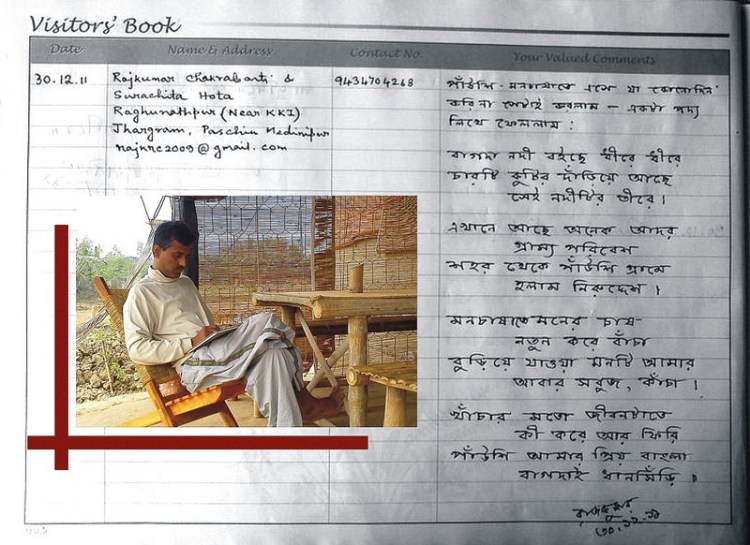 Visitors' Book
Date
Name & Address
Contact No.
Your Valued Comments
30.12.11
Rajkumar Chakrabarti &
Surachita Hota
Raghunathpur (Near KKI)
Jhargram, Paschim Medinipur
rajnrc2009@gmail.com
9434704268
পাঁউশি - মনচাষাতে এসে যা কোনোদিন
করি না সেটাই করলাম - একটা পদ্য
লিখে ফেললাম :
বাগদা নদী বইছে ধীরে ধীরে
চারটি কুটির দাঁড়িয়ে আছে
সেই নদীটির তীরে ।
এখানে আছে অনেক আদর
গ্রাম্য পরিবেশ
শহর থেকে পাঁউশি গ্রামে
হলাম নিরুদ্দেশ ।
মনচাষাতে মনের চাষ
নতুন করে বাঁচা
বুড়িয়ে যাওয়া মনটি আমার
আবার সবুজ, কাঁচা ।
খাঁচার মতো জীবনটাতে
কী করে আর ফিরি
পাঁউশি আমার প্রিয় বাংলা
বাগদাই ধানসিঁড়ি ।
রাজকুমার
৩০.১২.১১